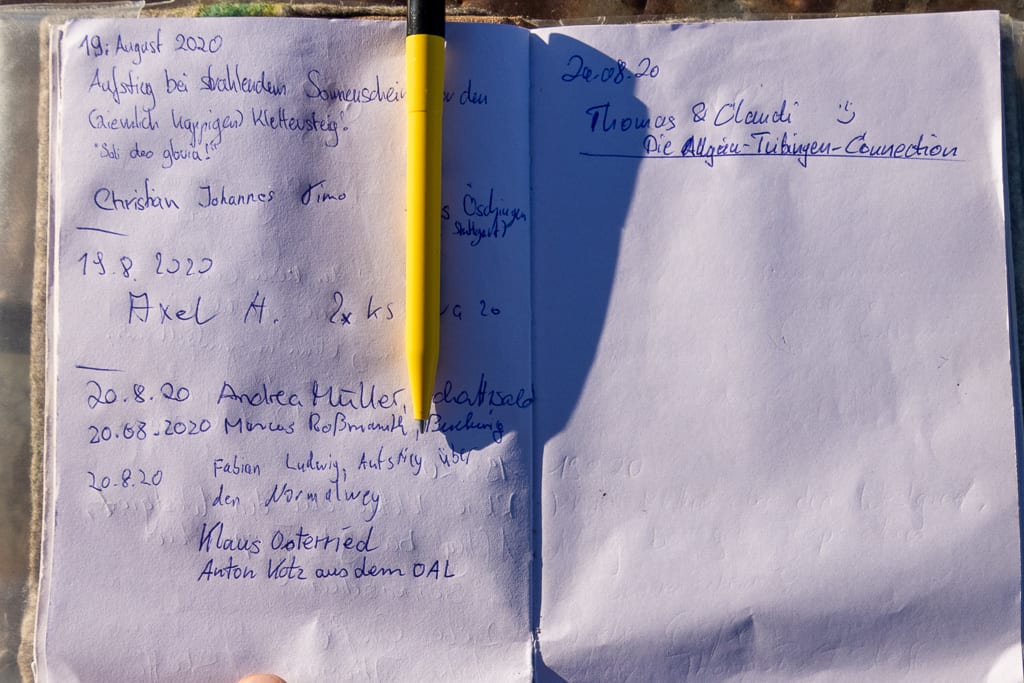 19. August 2020
Aufstieg bei strahlendem Sonnenschein den
(ziemlich happigen) Klettersteig!
"Soli deo gloria!"
Christian Johannes Timo
Öschingen
Stuttgart)
19.8.2020
Axel H. 2x ks a 20
20.8.20 Andrea Müller,
20.08.2020 Marcus Roßmanith,
20.8.20 Fabian Ludwig, Aufstieg über
den Normalweg
Klaus Osterried
Anton Kotz aus dem OAL
20.08.20
Thomas & Claudi
Die Allgäu-Tübingen-Connection